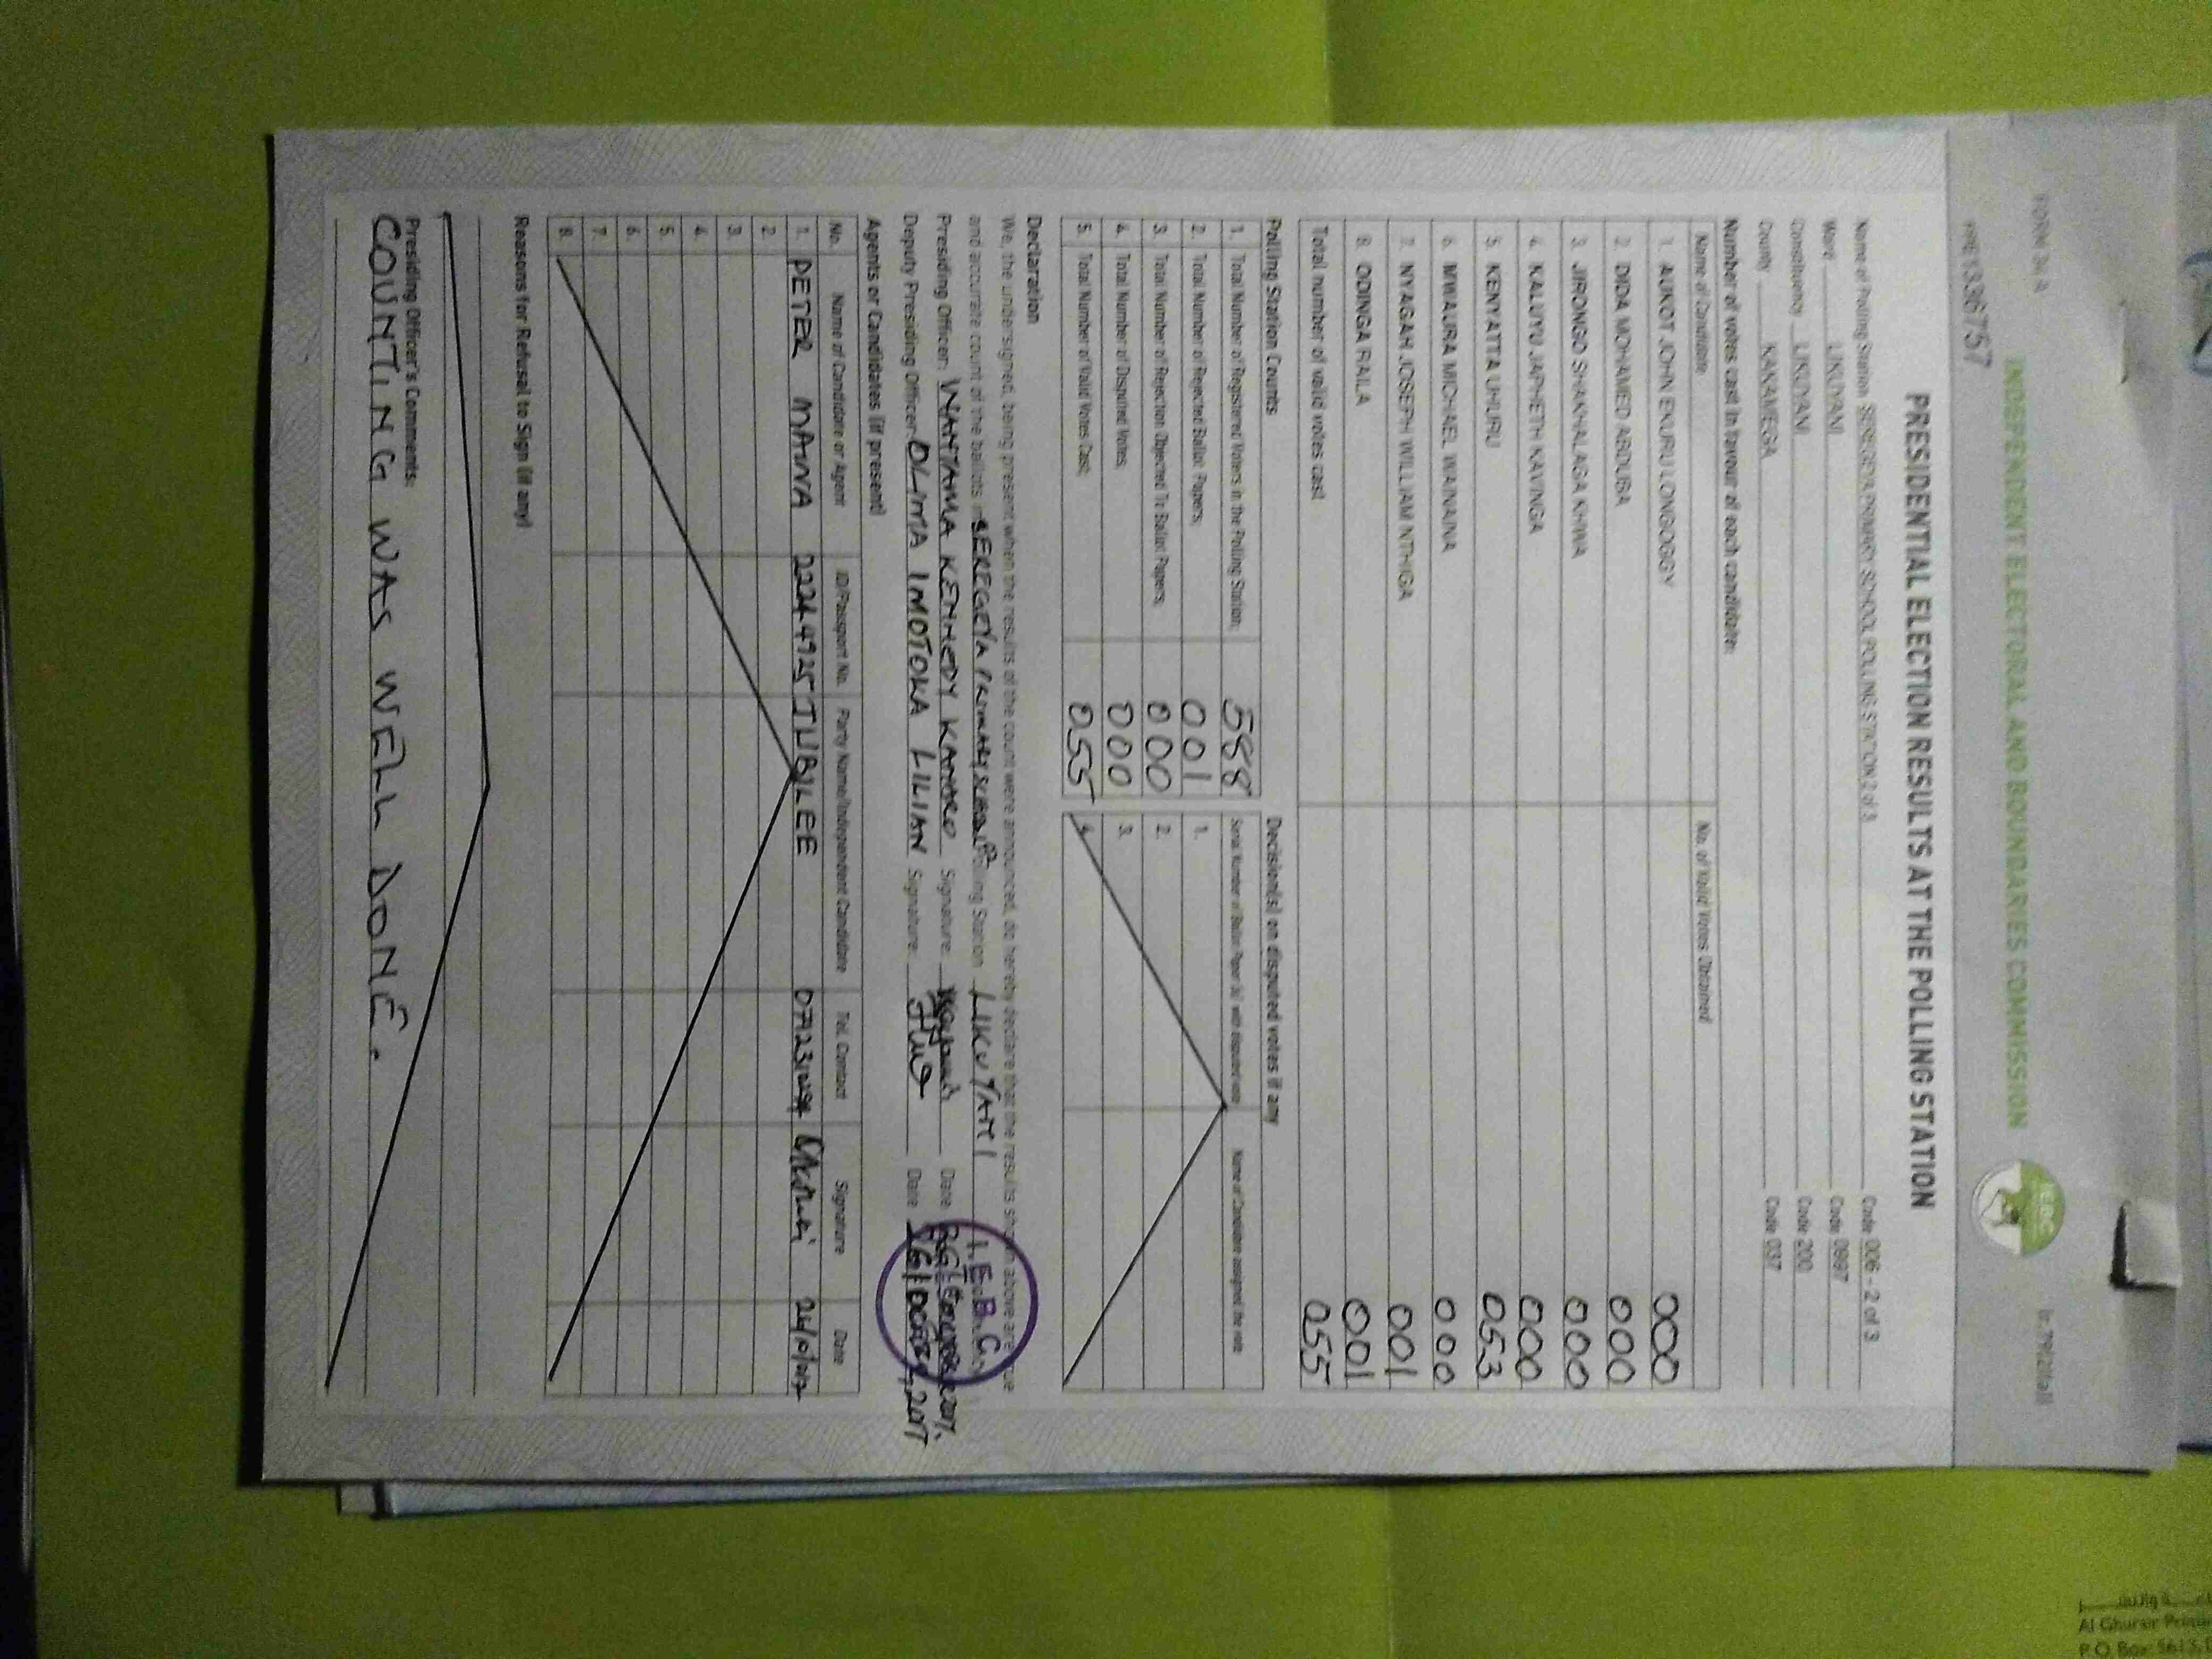 FORM 34 A
INDEPENDENT ELECTORAL AND BOUNDARIES COMMISSION
IEBC
PRE1336757
PRESIDENTIAL ELECTION RESULTS AT THE POLLING STATION
Name of Polling Station SEREGEYA PRIMARY SCHOOL POLLING STATION 2 of 3 Code 006 - 2 of 3
Ward LIKUYANI Code 0997
Constituency LIKUYANI Code 200
County KAKAMEGA Code 037
Number of votes cast in favour of each candidate:
Name of Candidate No. of Valid Votes Obtained
1. AUKOT JOHN EKURU LONGOGGY 000
2. DIDA MOHAMED ABDUBA 000
3. JIRONGO SHAKHALAGA KHWA 000
4. KALUYU JAPHETH KAVINGA 000
5. KENYATTA UHURU 053
6. MWAURA MICHAEL WAINAINA 000
7. NYAGAH JOSEPH WILLIAM NTHIGA 001
8. ODINGA RAILA 001
Total number of valid votes cast 055
Polling Station Counts
1. Total Number of Registered Voters in the Polling Station; 588
2. Total Number of Rejected Ballot Papers; 001
3. Total Number of Rejection Objected To Ballot Papers; 000
4. Total Number of Disputed Votes; 000
5. Total Number of Valid Votes Cast; 055
Decision(s) on disputed votes if any
Serial Number of Ballot Paper (s) with disputed vote Name of Candidate assigned the vote
1.
2.
3.
4.
Declaration
We, the undersigned, being present when the results of the count were announced, do hereby declare that the results shown above are true
and accurate count of the ballots in SEREGEYA PRIMARY SCHOOL Polling Station LIKUYANI
Presiding Officer: WANYAMA KENNEDY Signature: Date
Deputy Presiding Officer: OLIMA IMOTOKA LILIAN Signature: Date
I.E.B.C.
Agents or Candidates (if present)
No. Name of Candidate or Agent ID/Passport No. Party Name/Independent Candidate Tel. Contact Signature Date
1. PETER MAINA 22244925 JUBILEE
2.
3.
4.
5.
6.
7.
8.
Reasons for Refusal to Sign (if any)
Presiding Officer's Comments:
COUNTING WAS WELL DONE.
Al Ghurair